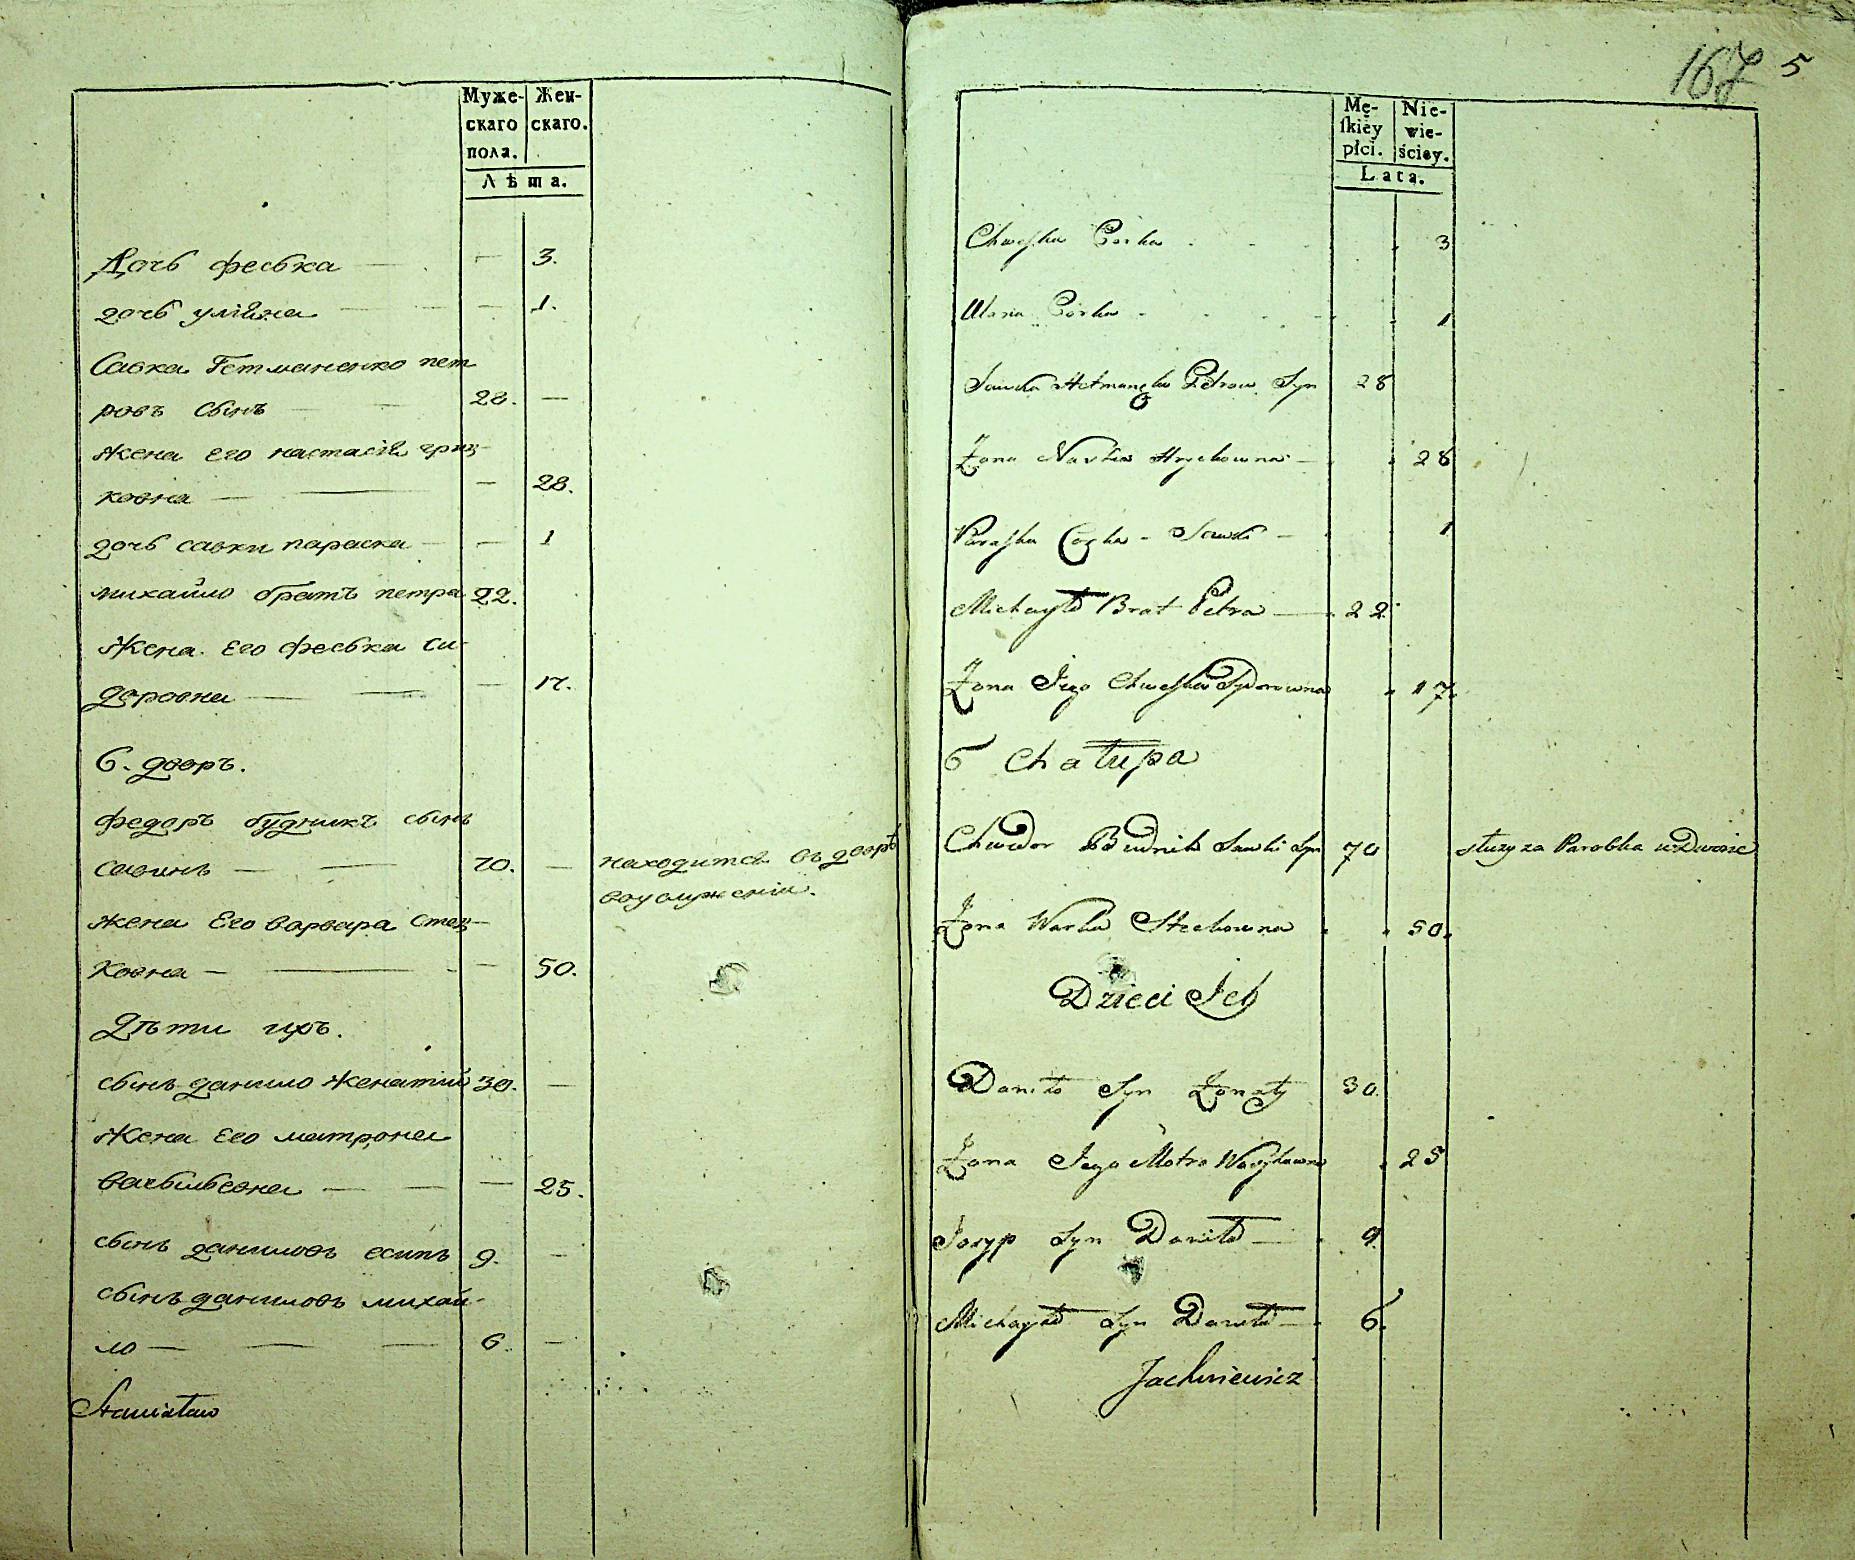 Муже-
скаго
пола.
Жен-
скаго.
Лѣта.
Дочь феська — — 3.
дочь уліяна — — 1.
Савка Гетманенко пет
ровъ сынъ — 28. —
жена его настасія гриц-
ковна — — 28.
дочь савки параска — — 1
михайло братъ петра 22.
жена его феська си-
доровна — — 17.
6. дворъ.
федоръ будникъ сынъ
савинъ — 70. — находится въ дворѣ
воуслуженіи.
жена его варвара стец-
ковна — — 50.
Дѣти ихъ.
сынъ данило женатій 30. —
жена его матрона
васильевна — — 25.
сынъ даниловъ есипъ 9. —
сынъ даниловъ михай-
ло — 6. —
Stanisław
167 5
Mę-
skiéy
płci.
Nie-
wie-
ściey.
Lata.
Chweśka Corka 3
Ulana Córka 1
Sawka Hetmanęko Petrow Syn 28
Żona Nastia Hryckowna 28
Paraska Corka Sawki 1
Michayło Brat Petra — 22
Żona Jego Chweśka Sydorowna 17.
6 Chałupa
Chwedor Budnik Sawki Syn 70 służy za Parobka u Dworze
Żona Warka Steckowna 50.
Dzieci Ich
Daniło Syn Żonaty 30.
Żona Jego Motra Wasylowna 25
Josyp Syn Daniła — 9.
Michayło Syn Daniła — 6.
Jachniewicz